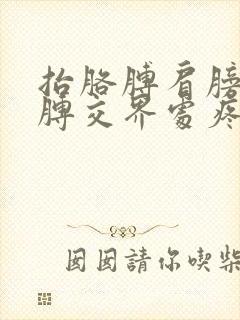 抬胳膊肩膀
膊交界處疼
囡囡請你喫柴